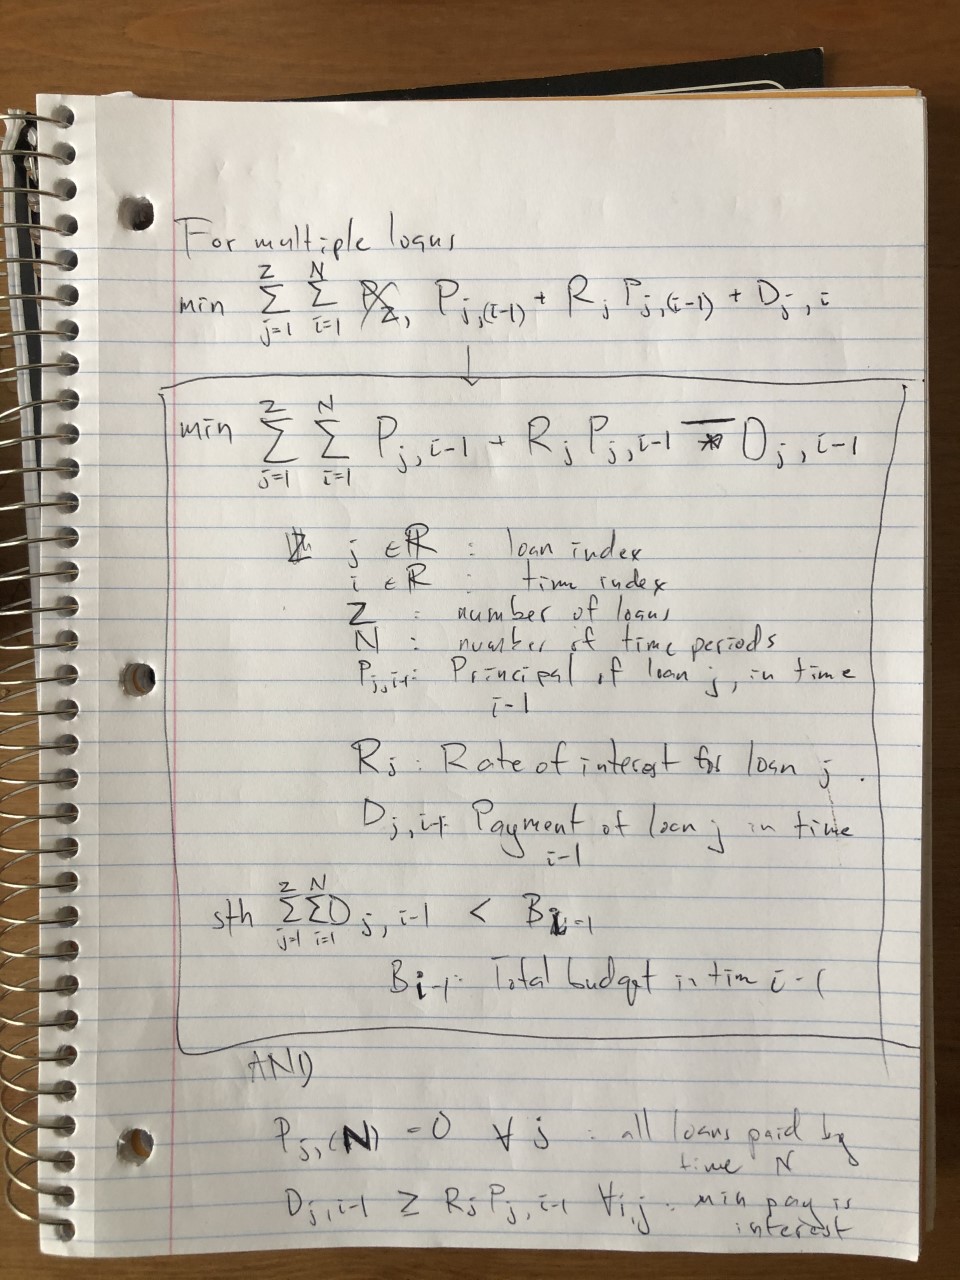 For multiple loans
min Σ_{j=1}^{Z} Σ_{i=1}^{N} P_{j,(i-1)} + R_j P_{j,(i-1)} + D_{j,i}
↓
min Σ_{j=1}^{Z} Σ_{i=1}^{N} P_{j,i-1} + R_j P_{j,i-1} - D_{j,i-1}
j ∈ ℝ : loan index
i ∈ ℝ : time index
Z : number of loans
N : number of time periods
P_{j,i-1}: Principal of loan j, in time
i-1
R_j : Rate of interest for loan j.
D_{j,i-1}: Payment of loan j in time
i-1
sth Σ_{j=1}^{Z} Σ_{i=1}^{N} D_{j,i-1} < B_{i-1}
B_{i-1}: Total budget in tim i-1
AND
P_{j,(N)} = 0 ∀ j : all loans paid by
time N
D_{j,i-1} ≥ R_j P_{j,i-1} ∀i,j : min pay is
interest